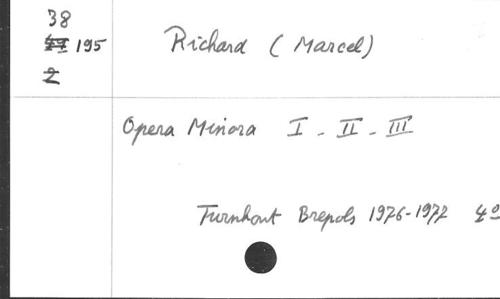 38
195
2
Richard (Marcel)
Opera Minora I - II - III
Turnhout Brepols 1976-1977 4º